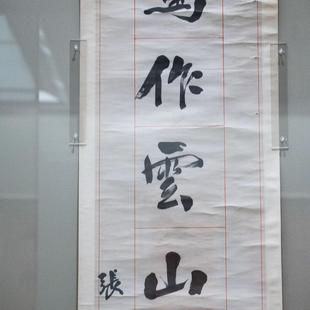 作雲山
張